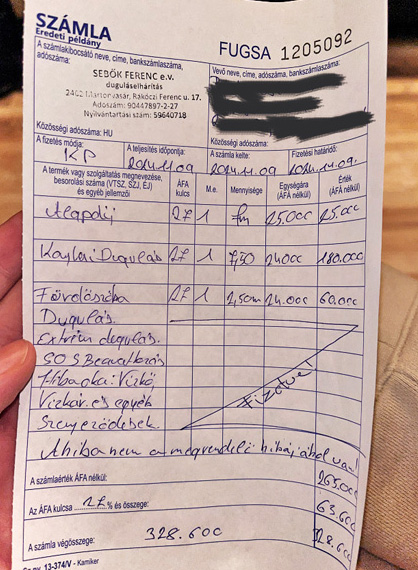 SZÁMLA
Eredeti példány
FUGSA 1205092
A számlakibocsátó neve, címe, bankszámlaszáma, adószáma:
SEBŐK FERENC e.v.
duguláselhárítás
2462 Martonvásár, Rákóczi Ferenc u. 17.
Adószám: 90447897-2-27
Nyilvántartási szám: 59640718
Közösségi adószáma: HU
Vevő neve, címe, adószáma, bankszámlaszáma:
Közösségi adószáma:
A fizetés módja: KP
A teljesítés időpontja: 2024.11.09
A számla kelte: 2024.11.09
Fizetési határidő: 2024.11.09.
A termék vagy szolgáltatás megnevezése, besorolási száma (VTSZ, SZJ, ÉJ) és egyéb jellemzői
ÁFA kulcs
M.e.
Mennyisége
Egységára (ÁFA nélkül)
Érték (ÁFA nélkül)
Alapdíj 27 1 fm 25.000 25.000
Konyhai Dugulás 27 1 7,50 24000 180.000
Fürdőszoba 27 1 2,50m 24.000 60.000
Dugulás.
Extrém dugulás.
SOS Beavatkozás
Hiba oka: Vízkő
Vízkő és egyéb
Szennyeződések
Fizetve!
A hiba nem a megrendelő hibájából van!
A számlaérték ÁFA nélkül: 265.000
Az ÁFA kulcsa 27 % és összege: 63.600
A számla végösszege: 328.600
13-374/V - Kamiker